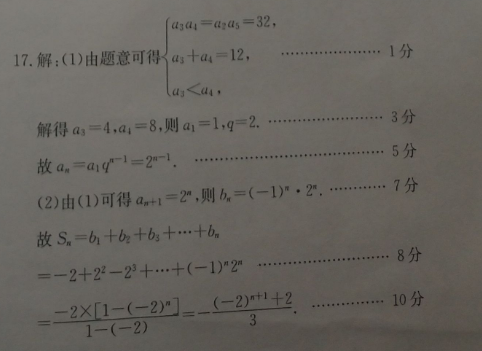 17.解:(1)由题意可得{a₃a₄=a₂a₅=32,
a₃+a₄=12, …………………1分
a₃<a₄,
解得a₃=4,a₄=8,则a₁=1,q=2. ……………………3分
故aₙ=a₁qⁿ⁻¹=2ⁿ⁻¹. …………………………………5分
(2)由(1)可得aₙ₊₁=2ⁿ,则bₙ=(-1)ⁿ·2ⁿ. …………7分
故Sₙ=b₁+b₂+b₃+…+bₙ
=-2+2²-2³+…+(-1)ⁿ2ⁿ ………………………8分
=\frac{-2×[1-(-2)ⁿ]}{1-(-2)}=-\frac{(-2)ⁿ⁺¹+2}{3}. ……………10分